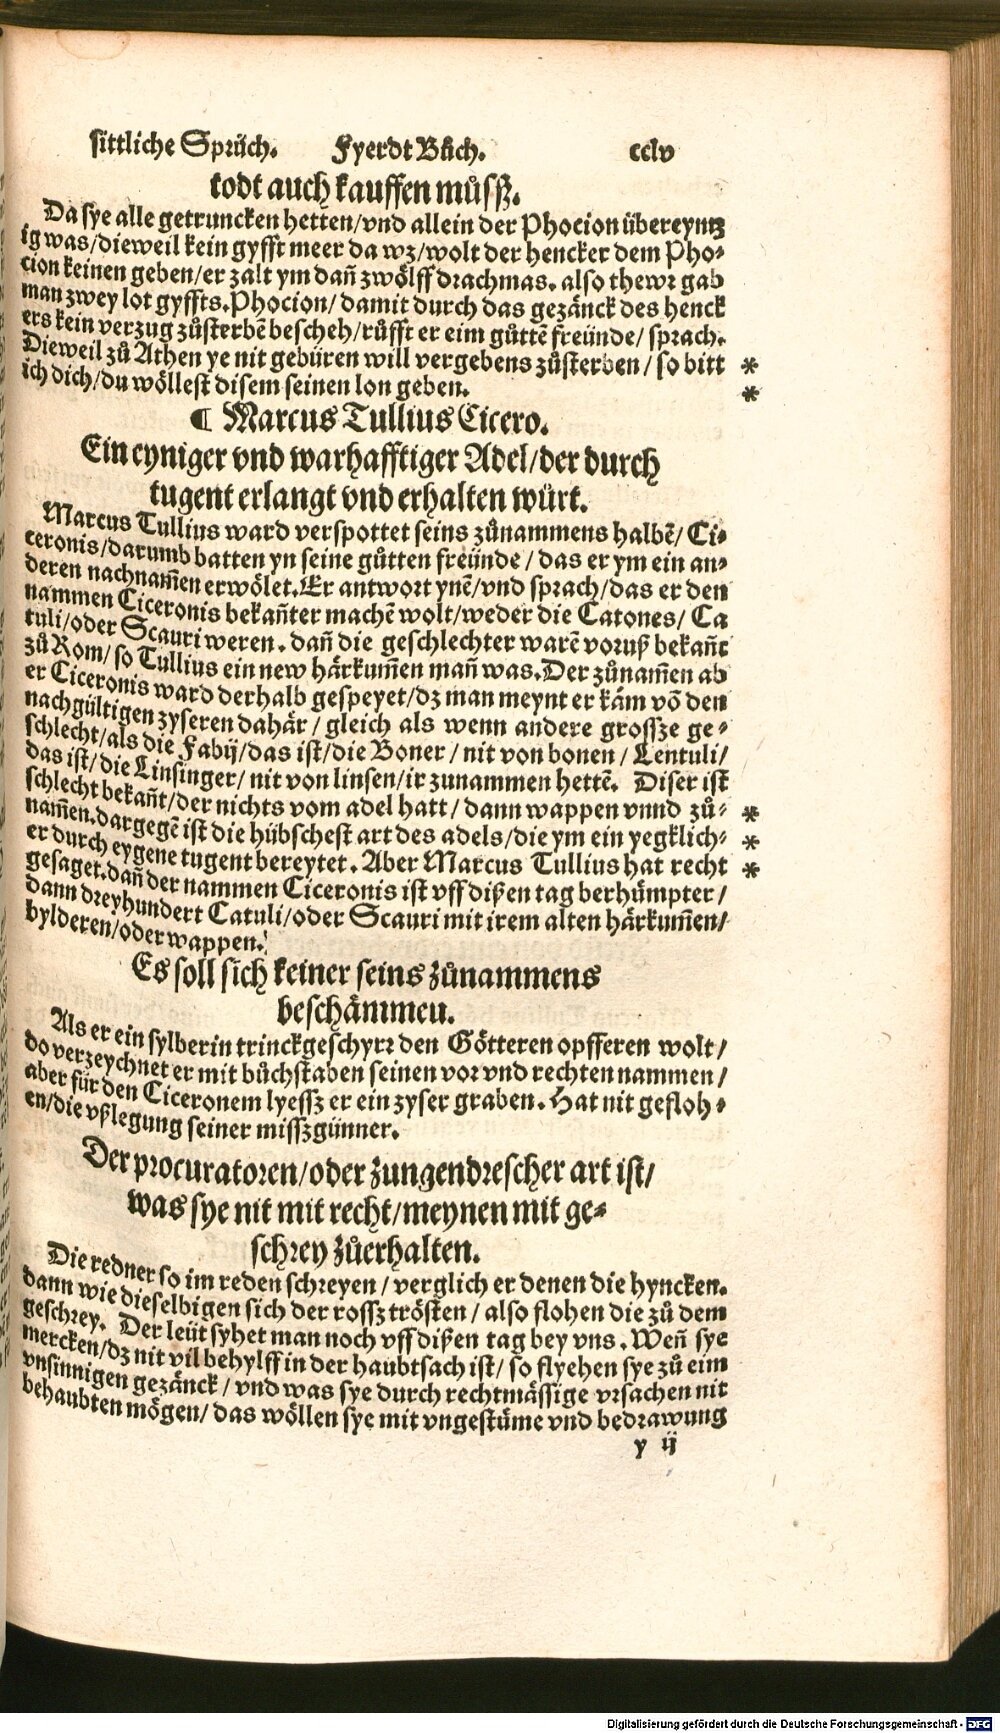 sittliche Sprüch. Fyerdt Bůch. cclv
todt auch kauffen můſſz.
Da ſye alle getruncken hetten/vnd allein der Phocion übereyntz
ig was/dieweil kein gyfft meer da wz/wolt der hencker dem Pho-
cion keinen geben/er zalt ym dañ zwölff drachmas. also thewr gab
man zwey lot gyffts. Phocion/damit durch das gezänck des henck
ers kein verzug zůſterbē beſcheh/růfft er eim gůttē freünde/ſprach.
Dieweil zů Athen ye nit gebüren will vergebens zůſterben/ſo bitt *
ich dich/du wölleſt diſem ſeinen lon geben. *
¶ Marcus Tullius Cicero.
Ein eyniger vnd warhafftiger Adel/der durch
tugent erlangt vnd erhalten würt.
Marcus Tullius ward verſpottet ſeins zůnammens halbē/Ci-
ceronis/darumb batten yn ſeine gůtten freünde/das er ym ein an-
deren nachnam̄en erwölet. Er antwort ynē/vnd ſprach/das er den
nammen Ciceronis bekañter machē wolt/weder die Catones/Ca
tuli/oder Scauri weren. dañ die geſchlechter warē voruß bekañt
zů Rom/ſo Tullius ein new härkum̄en mañ was. Der zůnam̄en ab
er Ciceronis ward derhalb geſpeyet/dz man meynt er käm vō den
nachgültigen zyſeren dahär/gleich als wenn andere groſſze ge-
ſchlecht/als die Fabij/das iſt/die Boner/nit von bonen/Lentuli/
das iſt/die Linſinger/nit von linſen/ir zunammen hettē. Diſer iſt
ſchlecht bekañt/der nichts vom adel hatt/dann wappen vnnd zů- *
nam̄en. dargegē iſt die hübſcheſt art des adels/die ym ein yegklich- *
er durch eygene tugent bereytet. Aber Marcus Tullius hat recht *
geſaget. dañ der nammen Ciceronis iſt vff dißen tag berhümpter/
dann dreyhundert Catuli/oder Scauri mit irem alten härkum̄en/
bylderen/oder wappen.
Es ſoll ſich keiner ſeins zůnammens
beſchämmen.
Als er ein ſylberin trinckgeſchyrr den Götteren opfferen wolt/
do verzeychnet er mit bůchſtaben ſeinen vor vnd rechten nammen/
aber für den Ciceronem lyeſſz er ein zyſer graben. Hat nit gefloh-
en/die vßlegung ſeiner miſſzgünner.
Der procuratoren/oder zungendreſcher art iſt/
was ſye nit mit recht/meynen mit ge-
ſchrey zůerhalten.
Die redner ſo im reden ſchreyen/verglich er denen die hyncken.
dann wie dieſelbigen ſich der roſſz tröſten/alſo flohen die zů dem
geſchrey. Der leüt ſyhet man noch vff dißen tag bey vns. Weñ ſye
mercken/dz nit vil behylff in der haubtſach iſt/ſo flyehen ſye zů eim
vnſinnigen gezänck/vnd was ſye durch rechtmäſſige vrſachen nit
behaubten mögen/das wöllen ſye mit vngeſtüme vnd bedrawung
y ij
Digitalisierung gefördert durch die Deutsche Forschungsgemeinschaft - DFG